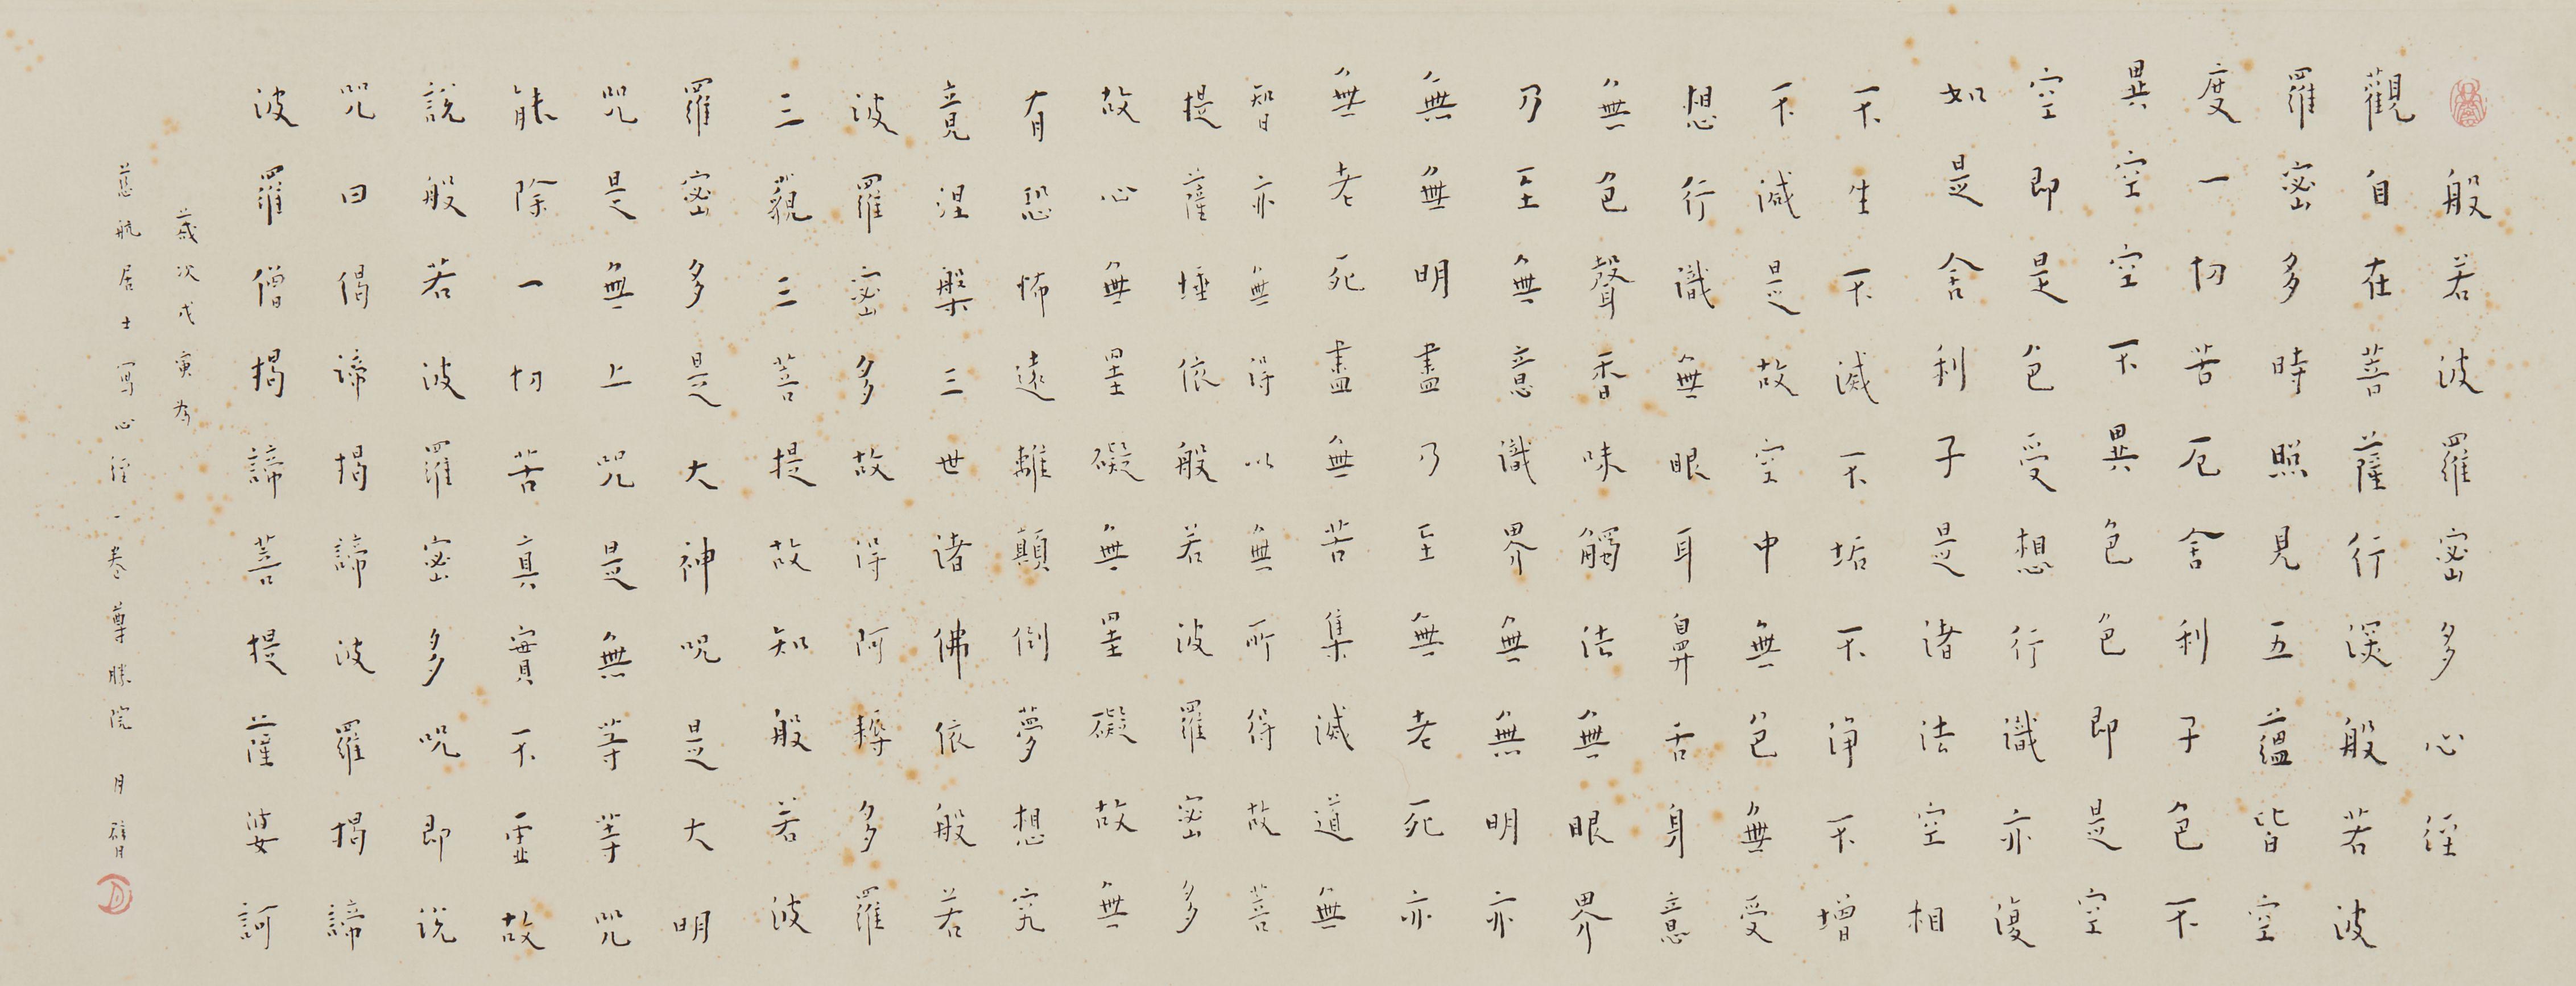 般若波羅密多心經
觀自在菩薩行深般若波
羅密多時照見五蘊皆空
度一切苦厄舍利子色不
異空空不異色色即是空
空即是色受想行識亦復
如是舍利子是諸法空相
不生不滅不垢不淨不增
不減是故空中無色無受
想行識無眼耳鼻舌身意
無色聲香味觸法無眼界
乃至無意識界無無明亦
無無明盡乃至無老死亦
無老死盡無苦集滅道無
智亦無得以無所得故菩
提薩埵依般若波羅密多
故心無罣礙無罣礙故無
有恐怖遠離顛倒夢想究
竟涅槃三世諸佛依般若
波羅密多故得阿耨多羅
三藐三菩提故知般若波
羅密多是大神咒是大明
咒是無上咒是無等等咒
能除一切苦真實不虛故
說般若波羅密多咒即說
咒曰揭諦揭諦波羅揭諦
波羅僧揭諦菩提薩婆訶
歲次戊寅為
慈航居士寫心經一卷尊勝院 月臂